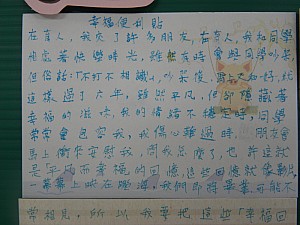 幸福便利貼
在育人，我交了許多朋友，在育人，我和同學
度過著快樂時光，雖然有時會與同學吵架
但俗話：「不打不相識」，吵架後，
這樣過了六年，雖然平凡，但卻隱藏著
幸福的滋味，我的情緒不穩定時，同學
常常會包容我，我傷心難過時，朋友會
馬上衝來安慰我，問我怎麼了，也許這就
是平凡而幸福的回憶，這些回憶就像動
一幕幕上映在腦海，我們即將畢業，可能不
常相見，所以我要把這些「幸福回